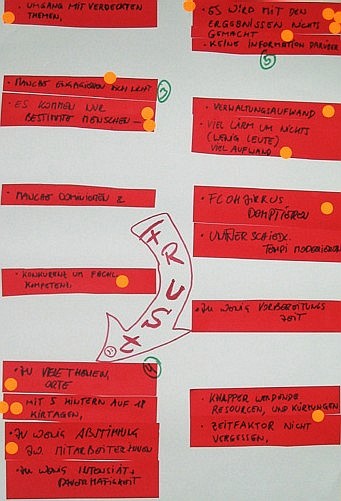 • UMGANG MIT VERDECKTEN
THEMEN,
• MANCHE ENGAGIEREN SICH NICHT
3
• ES KOMMEN NUR
BESTIMMTE MENSCHEN
• MANCHE DOMINIEREN
• KONKURRENZ UM FACHL.
KOMPETENZ
4
• ZU VIELE THEMEN,
ORTE
• MIT 5 HINTERN AUF 18
KIRTAGEN,
• ZU WENIG ABSTIMMUNG
ZW. MITARBEITER:INNEN
• ZU WENIG INTENSITÄT,
DAUERHAFTIGKEIT
FRUST
• ES WIRD MIT DEN
ERGEBNISSEN NICHTS
GEMACHT
• KEINE INFORMATION DARÜBER
5
• VERWALTUNGSAUFWAND
• VIEL LÄRM UM NICHTS
(WENIG LEUTE)
VIEL AUFWAND
• FLOHZIRKUS
DOMPTIEREN
• UNTERSCHIEDL.
TEMPI MODERIEREN
• ZU WENIG VORBEREITUNGS
ZEIT
• KNAPPER WERDENDE
RESOURCEN, UND KÜRZUNGEN
• ZEITFAKTOR NICHT
VERGESSEN,